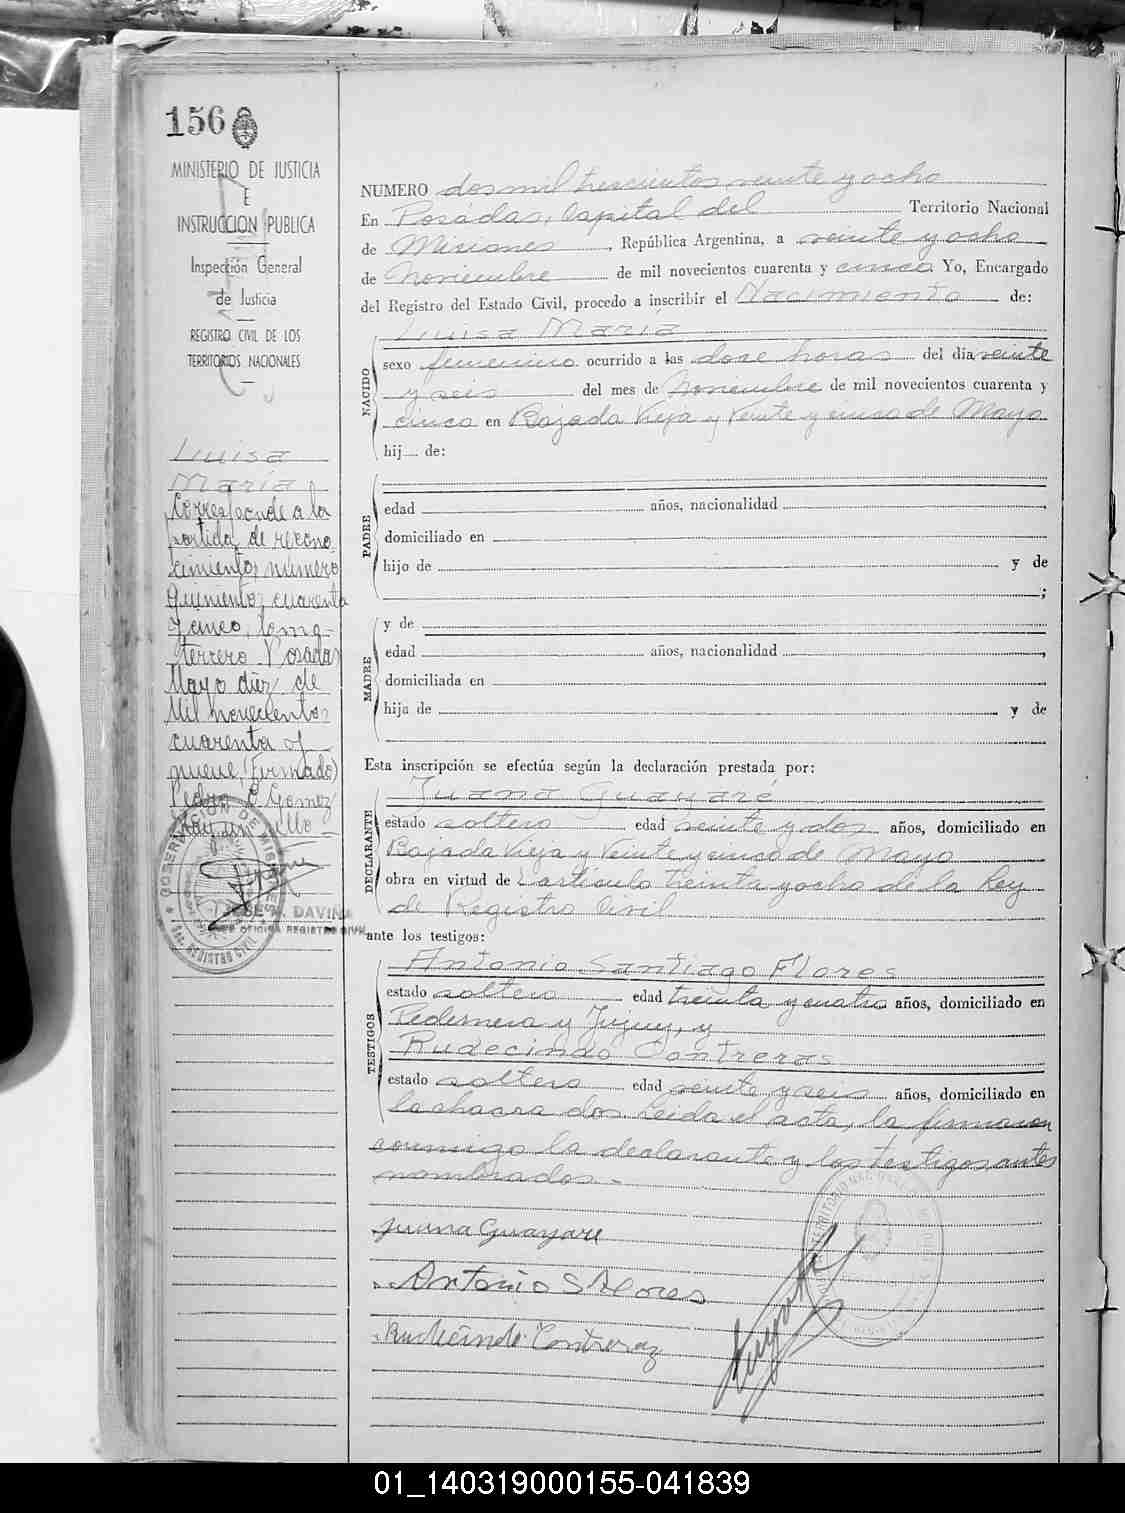 156
MINISTERIO DE JUSTICIA
E
INSTRUCCION PUBLICA
Inspección General
de Justicia
REGISTRO CIVIL DE LOS
TERRITORIOS NACIONALES
Luisa
María
Corresponde a la
partida de recono
cimiento, número
quinientos cuarenta
y cinco, tomo
tercero Posadas
Mayo diez de
Mil novecientos
cuarenta y
nueve, (Firmado)
Pedro E. Gomez
hay un sello
GOBERNACION DE MISIONES
REGISTRO CIVIL
JOSE DAVIÑA
JEFE OFICINA REGISTRO CIVIL
NUMERO dos mil trescientos veinte y ocho
En Posadas, Capital del Territorio Nacional
de Misiones, República Argentina, a veinte y ocho
de Noviembre de mil novecientos cuarenta y cinco. Yo, Encargado
del Registro del Estado Civil, procedo a inscribir el Nacimiento de:
NACIDO
Luisa María
sexo femenino ocurrido a las doce horas del día veinte
y seis del mes de Noviembre de mil novecientos cuarenta y
cinco en Bajada Vieja y Veinte y cinco de Mayo
hij de:
PADRE
edad años, nacionalidad
domiciliado en
hijo de y de
;
MADRE
y de
edad años, nacionalidad
domiciliada en
hija de y de
Esta inscripción se efectúa según la declaración prestada por:
DECLARANTE
Juana Guayaré
estado soltera edad veinte y dos años, domiciliado en
Bajada Vieja y Veinte y cinco de Mayo
obra en virtud de l artículo treinta y ocho de la Ley
de Registro Civil
ante los testigos:
TESTIGOS
Antonio Santiago Flores
estado soltero edad treinta y cuatro años, domiciliado en
Pedernera y Jujuy, y
Rudecindo Contreras
estado soltero edad veinte y seis años, domiciliado en
la chacra dos. Leida el acta, la firmaron
conmigo la declarante y los testigos antes
nombrados.-
Juana Guayare
Antonio S Flores
Rudecindo Contreraz
01_140319000155-041839